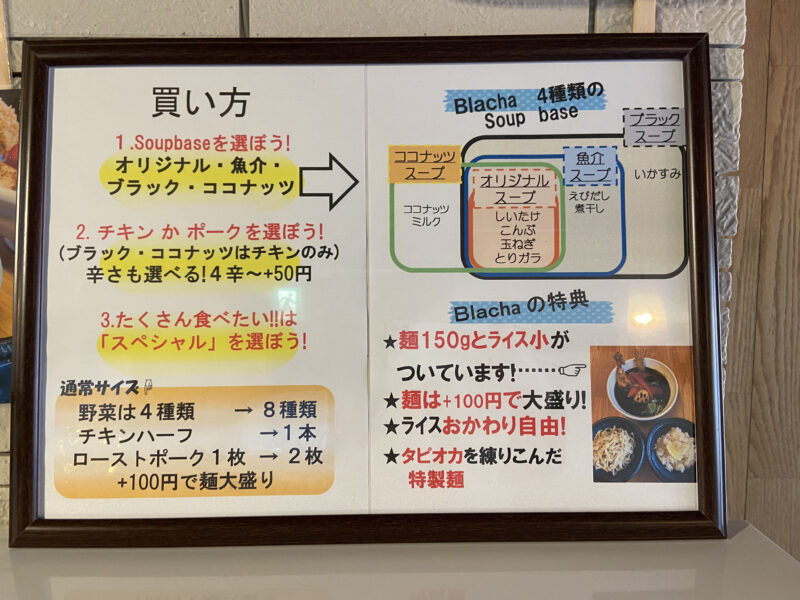 買い方
1.Soupbaseを選ぼう!
オリジナル・魚介・
ブラック・ココナッツ
2. チキン か ポークを選ぼう!
(ブラック・ココナッツはチキンのみ)
辛さも選べる!4辛～+50円
3.たくさん食べたい!!は
「スペシャル」を選ぼう!
通常サイズ
野菜は4種類 → 8種類
チキンハーフ →1本
ローストポーク1枚 → 2枚
+100円で麺大盛り
Blacha 4種類の
Soup base
ブラック
スープ
いかすみ
ココナッツ
スープ
ココナッツ
ミルク
オリジナル
スープ
しいたけ
こんぶ
玉ねぎ
とりガラ
魚介
スープ
えびだし
煮干し
Blachaの特典
★麺150gとライス小が
ついています!……☞
★麺は+100円で大盛り!
★ライスおかわり自由!
★タピオカを練りこんだ
特製麺